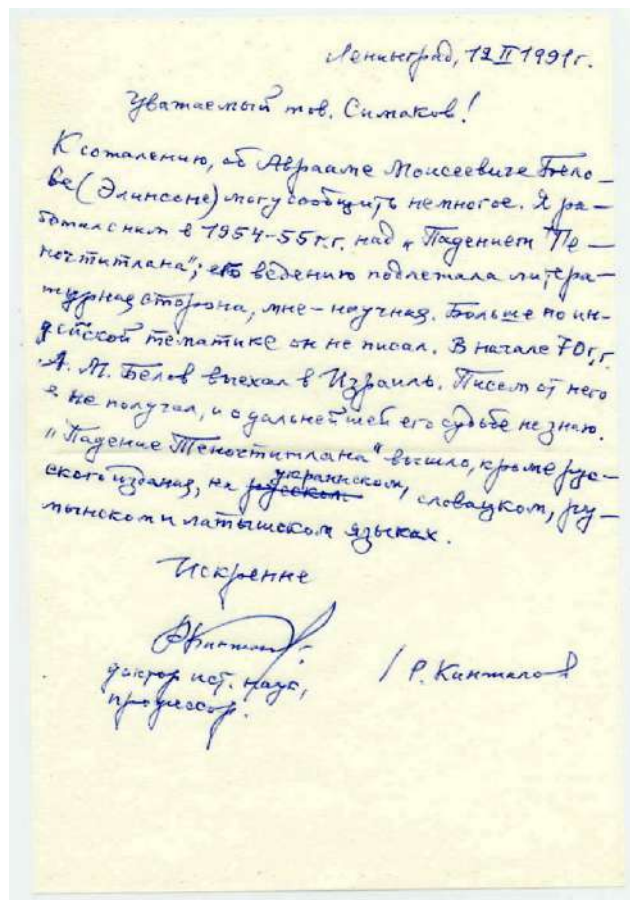 Ленинград, 12 II 1991г.
Уважаемый тов. Симаков!
К сожалению, об Аврааме Моисеевиче Бело-
ве (Элинсоне) могу сообщить немногое. Я ра-
ботал с ним в 1954-55 г.г. над „Падением Те-
ночтитлана“; его ведению подлежала литера-
турная сторона, мне – научная. Больше по ин-
дейской тематике он не писал. В начале 70 г.г
А. М. Белов выехал в Израиль. Писем от него
я не получал, и о дальнейшей его судьбе не знаю.
„Падение Теночтитлана“ вышло, кроме рус-
ского издания, на русском украинском, словацком, ру-
мынском и латышском языках.
Искренне
Р Кинжалов
доктор ист. наук, / Р. Кинжалов
профессор.